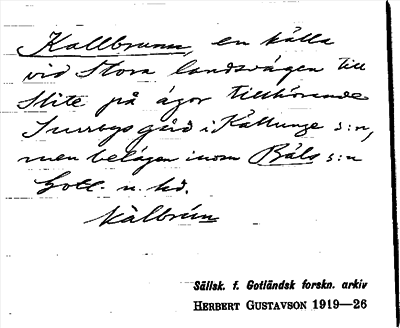 Kallbrunn, en källa
vid Stora landsvägen till
Slite på ägor tillhörande
gård i Källunge s:n,
men belägen inom Bäls s:n
Gotl. n. hd.
kàlbrùn
Sällsk. f. Gotländsk forskn. arkiv
HERBERT GUSTAVSON 1919—26